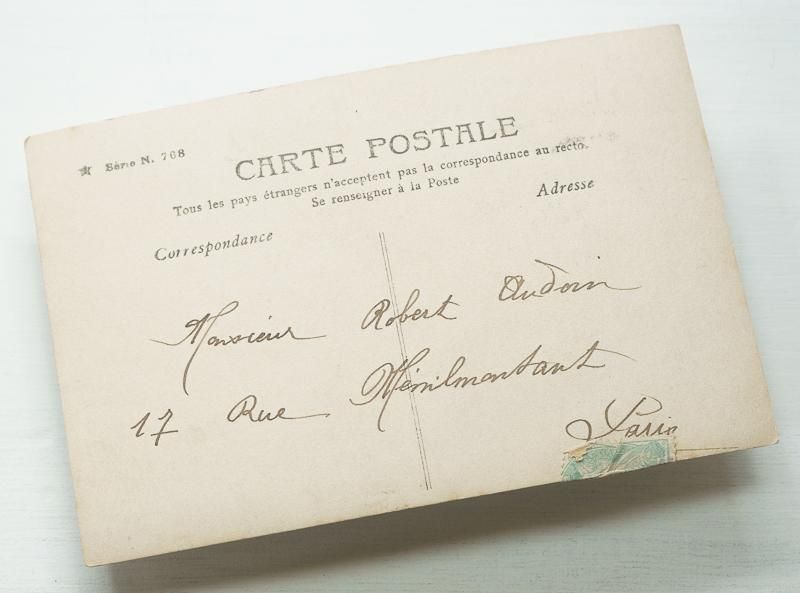 Série N. 768
CARTE POSTALE
Tous les pays étrangers n'acceptent pas la correspondance au recto.
Se renseigner à la Poste
Correspondance
Adresse
Monsieur Robert Audoin
17 Rue Ménilmontant
Paris